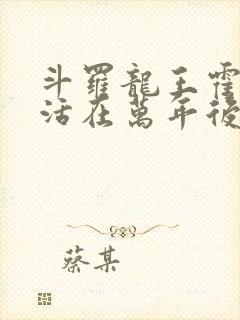 斗羅龍王霍
活在萬年後
蔡某